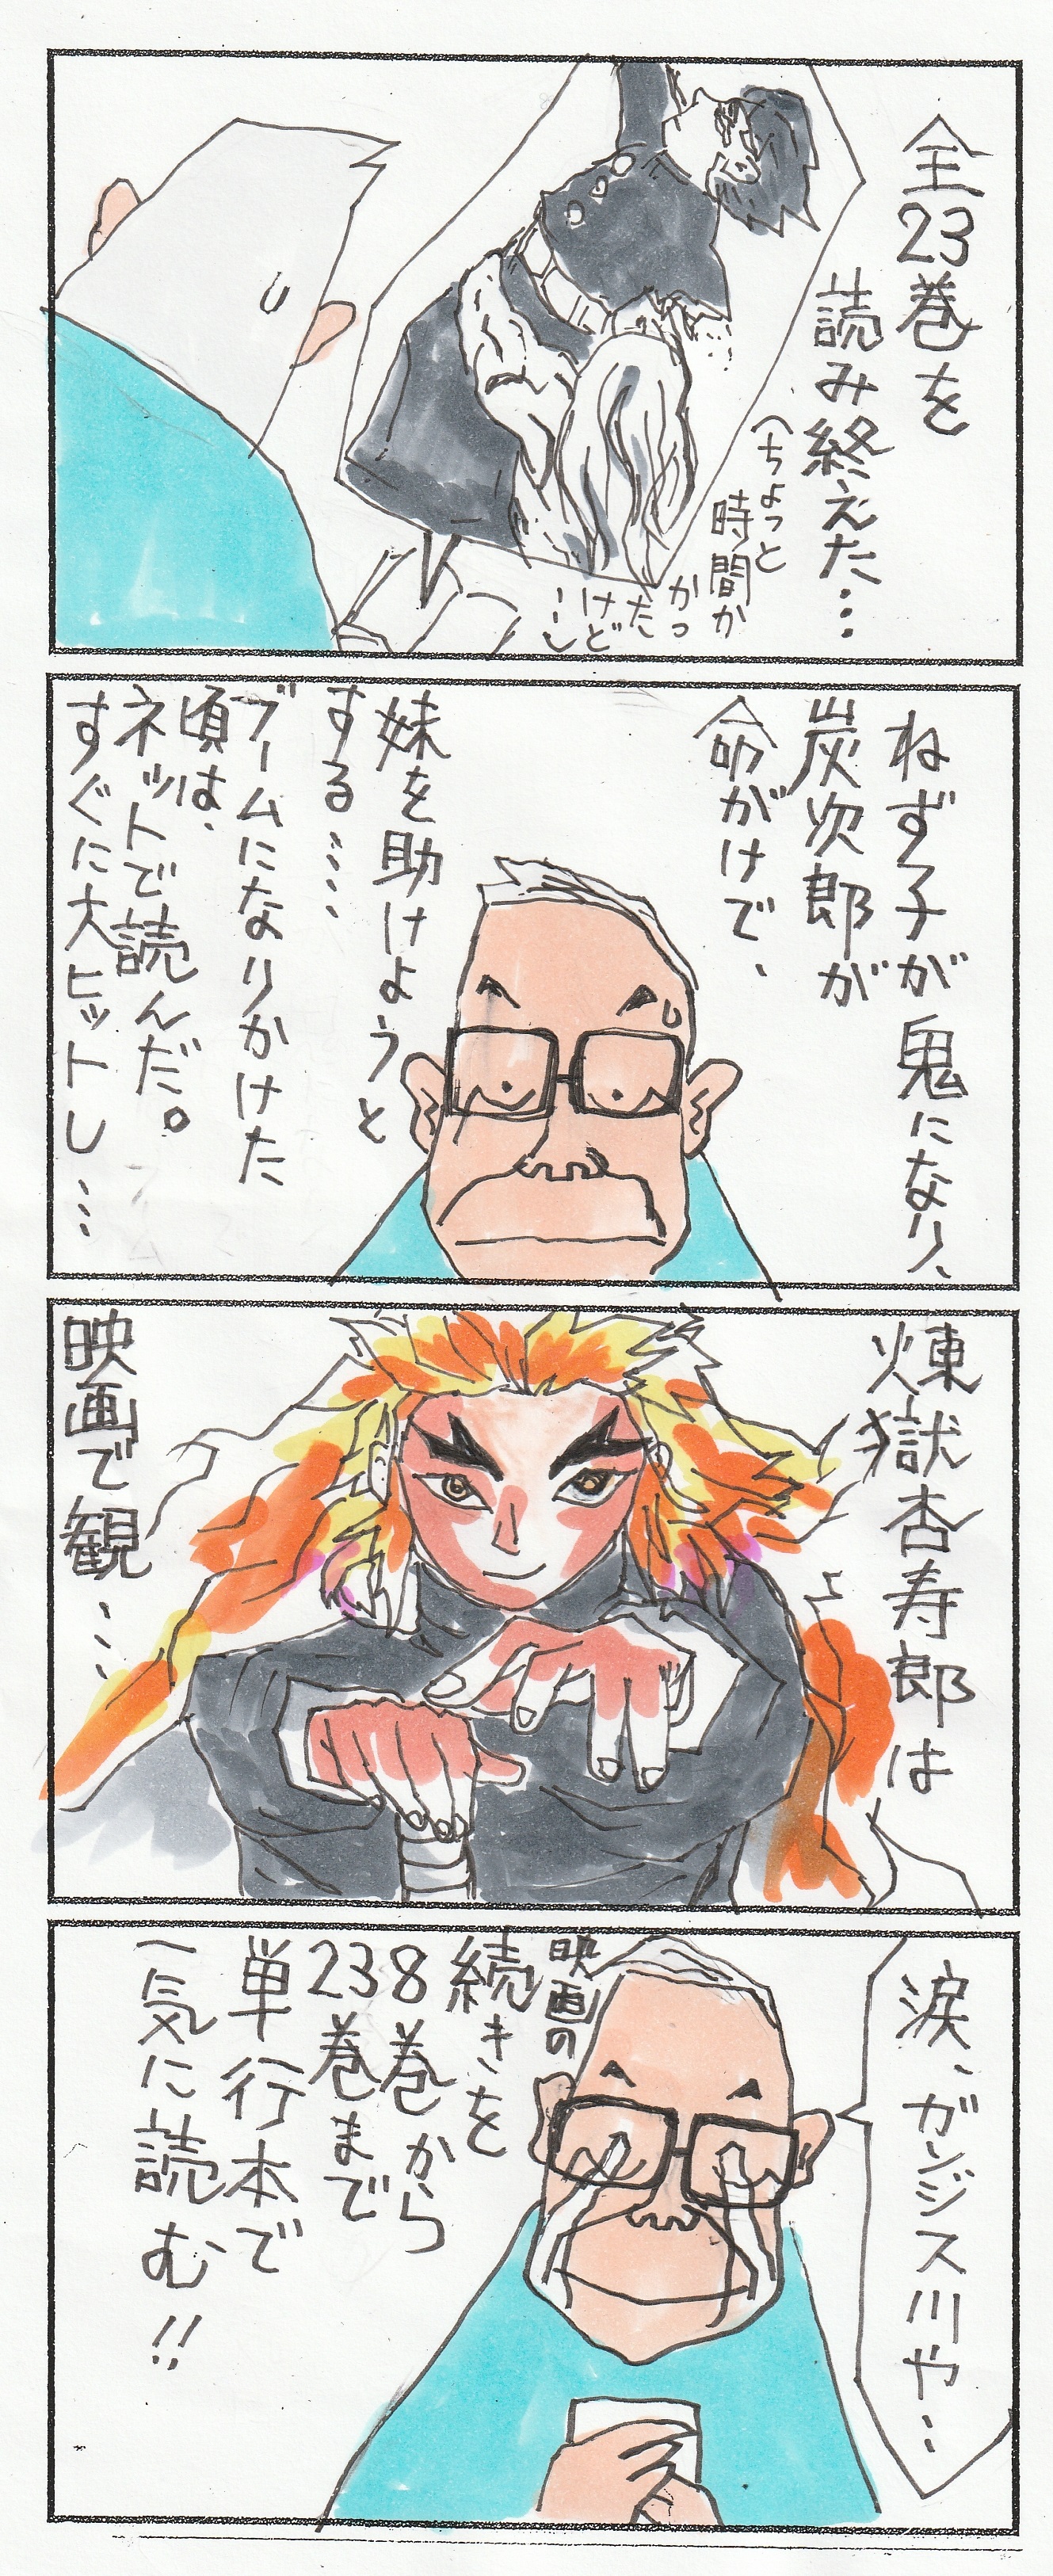 全23巻を
読み終えた…
(ちょっと
時間が
かっ
た
けど
…し
ねず子が鬼になり、
炭次郎が
命がけで、
妹を助けようと
する……
ブームになりかけた
頃は、
ネットで読んだ。
すぐに大ヒットし…
煉獄杏寿郎は
映画で観…
涙、ガンジス川や…
映画の
続きを
8巻から
23巻まで
単行本で
一気に読む!!